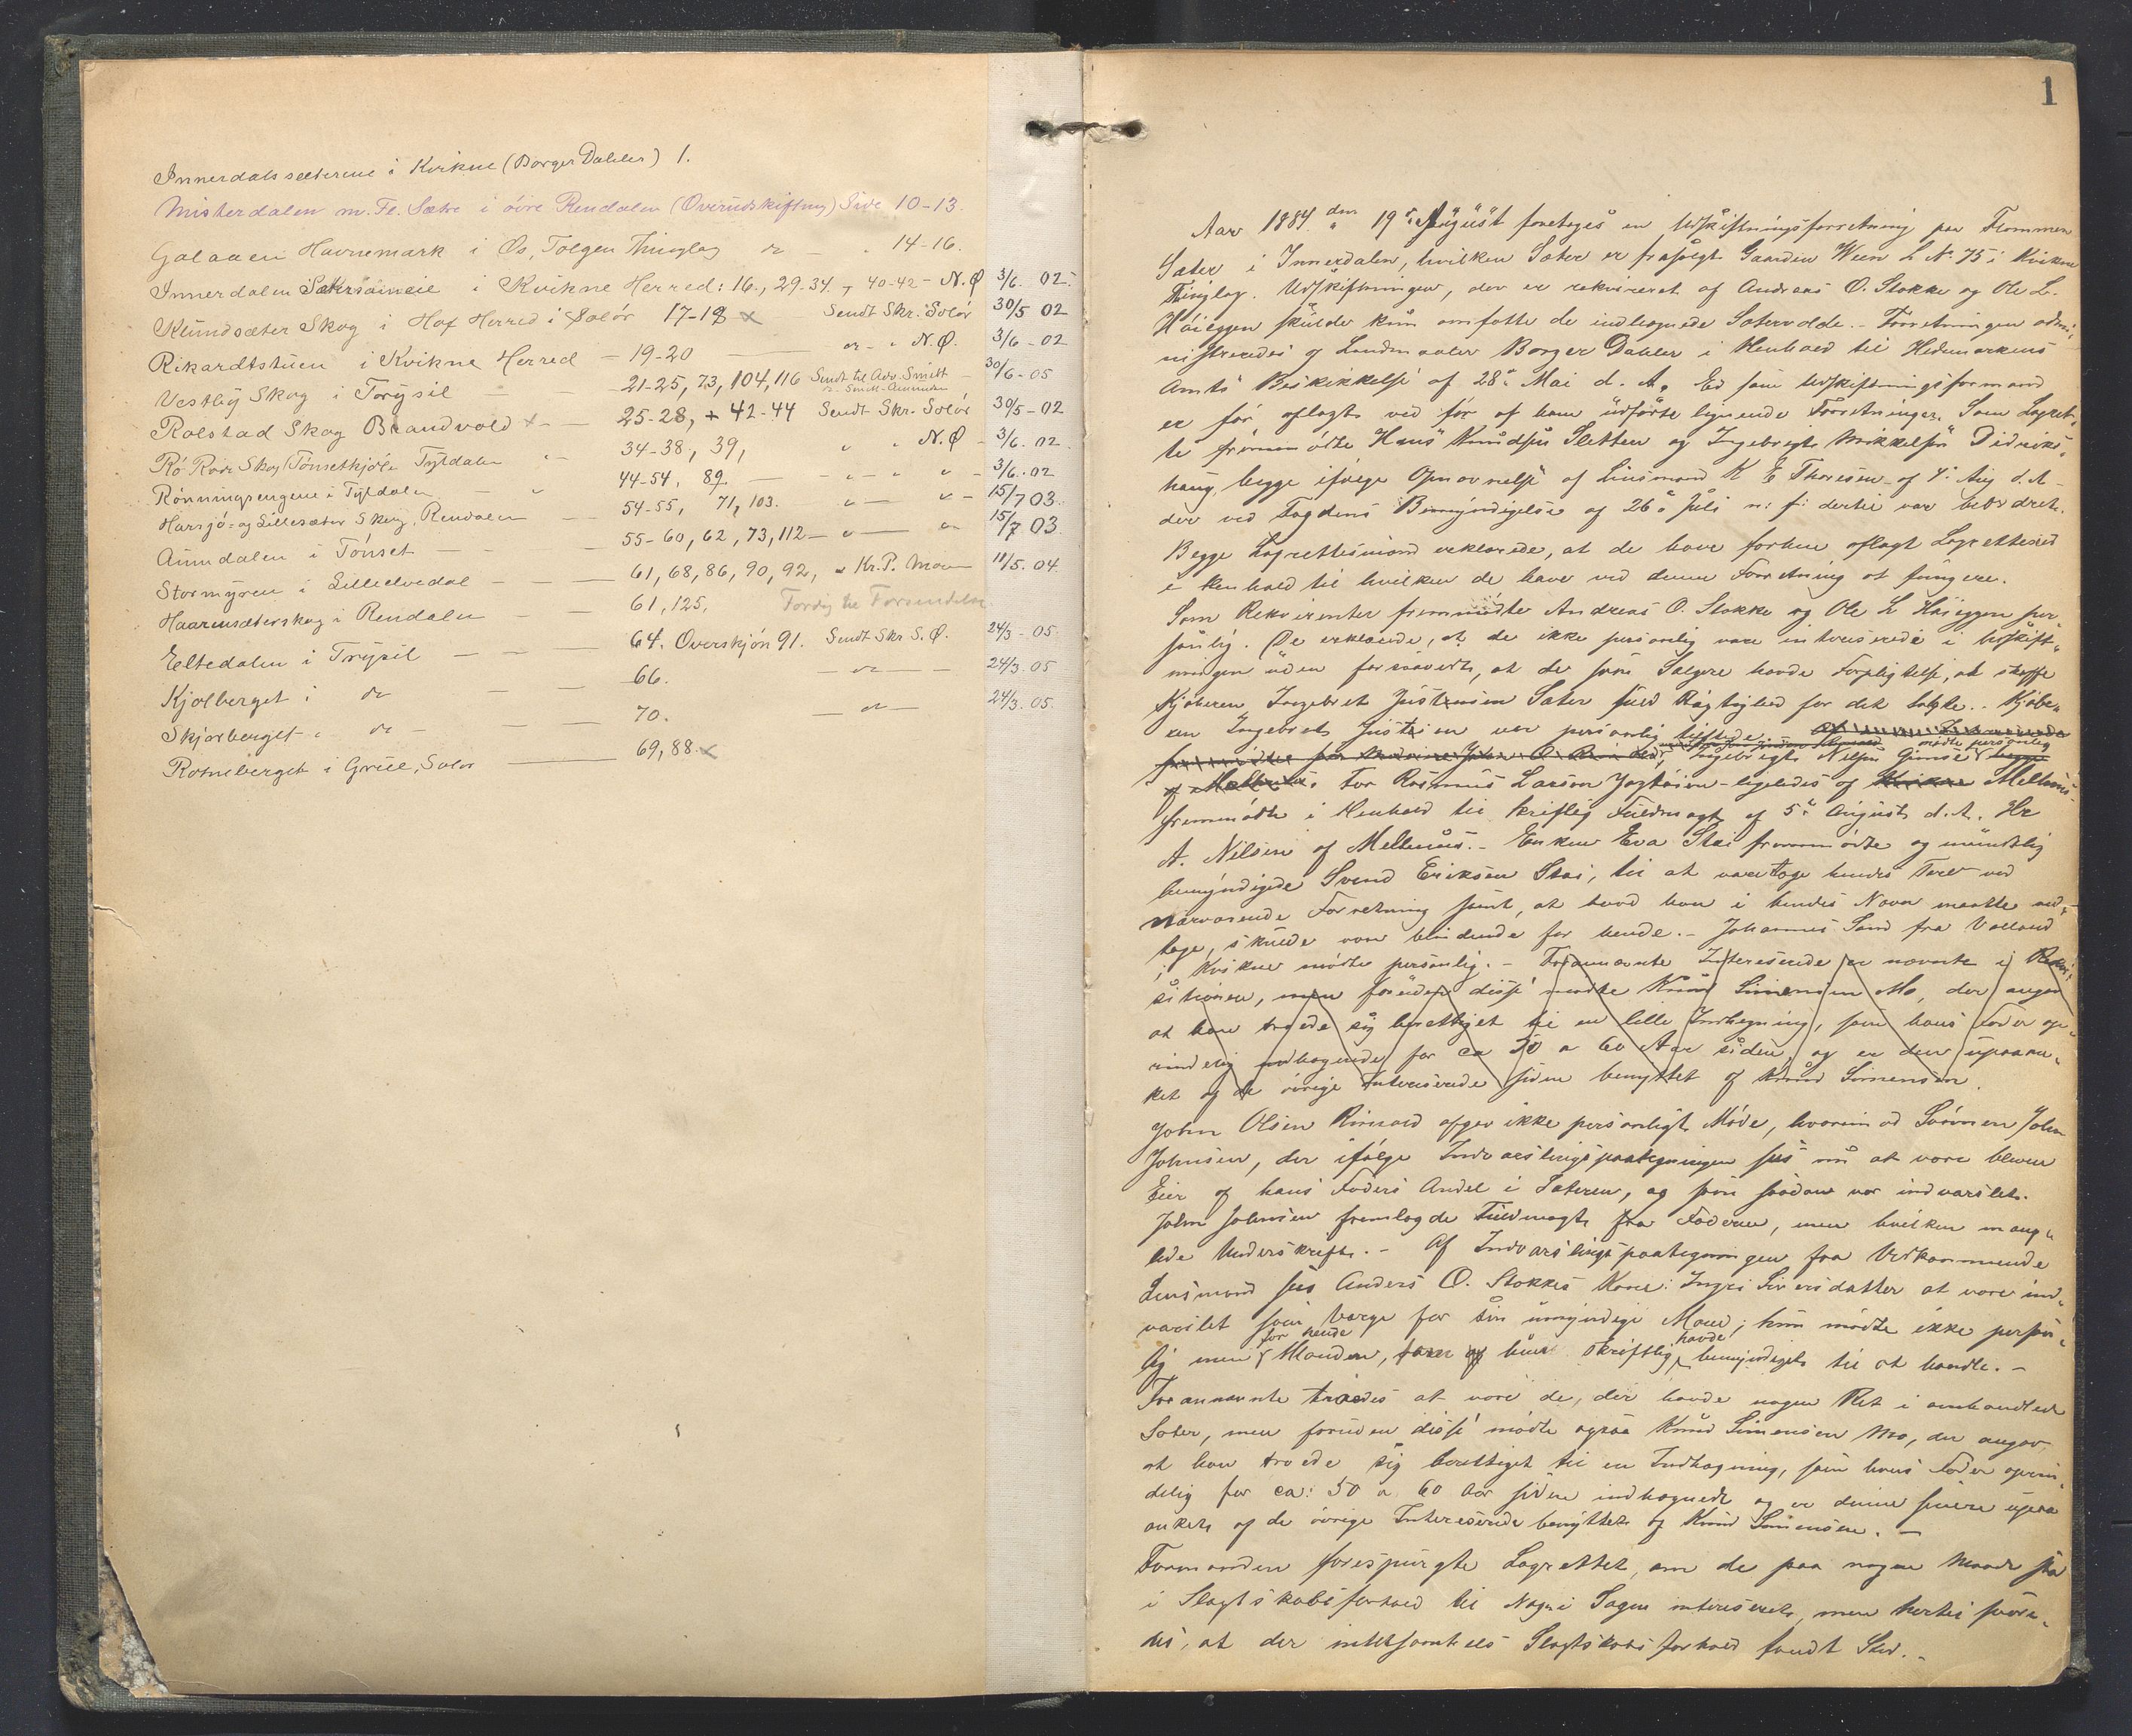 Innerdalssæterene i Kvikne (Borger Dahler) 1.
Misterdalen m. Fl. Sætre i övre Rendalen (Overudskiftning) Side 10-13.
Galaaen Havnemark i Os, Tolgen Thinglag do - " 14-16.
Innerdalen Sæter i Kvikne Herred: 16., 29-34. + 40-42 - N.Ø 3/6 02.
Klundsæter Skog i Hof Herred i Solör 17-18 x Sendt Skr. Solör 30/5 02
Rikardtstuen i Kvikne Herred - 19-20 — do - " N.Ø. 3/6 - 02
Vestby Skog i Trysil - - 21-25, 73, 104, 116 Sendt til Adv. Smitt - 30/6 - 05
Rolstad Skog Brandvold x - - 25-28, + 42-44 Sendt Skr. Solör 30/5 - 02
Rö Skog (Tönsetkjöle Tyldalen " - 34-38, 39, " " N.Ø - 3/6. 02
Rönningsengene i Tyldalen - " 44-54, 89. — " - " - " 3/6. 02
Harsjö- og Lillesæter Skog, Rendalen - 54-55, 71, 103. " - " - 15/7 03.
Aumdalen i Tönset - - - 55-60, 62, 73, 112 - " - " 15/7 03
Stormyren i Lilleelvedal - - - 61, 68, 86, 90, 92, " Kr. P. Moen 11/5. 04.
Haarensæterskog i Rendalen - - 61, 125, Færdig til Forsendelse
Eltedalen i Trysil - - - 64. Overskjön 91. Sendt Skr. S. Ø. 24/3 - 05.
Kjølberget i do - - 66. - do - 24/3. 05
Skjærberget i do - - - 70. - do - 24/3. 05.
Rotneberget i Grue, Solør — 69, 88. x
1
Aar 1884 den 19de August foretoges en Udskiftningsforretning paa Flommen
Sæter i Innerdalen, hvilken Sæter er frasolgt Gaarden Ween L No 75 i Kvikne
Thinglag. Udskiftningen, der er rekvireret af Andreas O. Stokke og Ole L.
Höieggen skulde kun omfatte de indhegnede Sætervolde. - Forretningen admi„
nistreredes af Landmaaler Borger Dahler i Henhold til Hedemarkens
Amts Beskikkelse af 28de Mai d. A. Ed som Udskiftningsformand
er før aflagt ved før af ham udførte lignende Forretninger. Som Lagret„
te fremmödte Hans Knudsen Sletten og Ingebrigt Mikkelsen Didriks„
haug, begge ifølge Opnævnelse af Lensmand K E Thoresen af 4de Aug d. A -
der ved Fogdens Bemyndigelse af 26de Juli n: f: dertil var beordret.
Begge Lagrettesmænd erklærede, at de have forhen aflagt Lagrettesed
i Henhold til hvilken de have ved denne Forretning at fungere.
Som Rekvirenter fremmödte Andreas O. Stokke og Ole L Höieggen per„
sonlig. De erklærede, at de ikke personlig vare interesserede i Udskift„
ningen uden forsaavidt, at de som Sælgere havde Forpligtelse, at skaffe
Kjøberen Ingebret Justensen Sæter fuld Rigtighed for det Solgte. - Kjøbe„
ren Ingebret Justensen var personlig tilstede.
Ingebrigt Nilsen Gunse mødte personlig
For Rasmus Larsen ligeledes af Mellnus
fremmödte i Henhold til skriftlig Fuldmagt af 5de August d. A. Hr
A. Nilsen af Mellnus. - Enken Eva Stai fremmödte og mundtlig
bemyndigede Svend Eriksen Stai, til at varetage hendes Tarv ved
nærværende Forretning samt, at hvad han i hendes Navn maatte ved„
tage, skulde være bindende for hende. - Johannes Sand fra Volland
i Kvikne mødte personlig. - Forannævnte Interesserede er nævnte i Rekvi„
sitionen, men foruden disse mødte Knud Simensen Mo, der angav
at han troede sig berettiget til en lille Indhegning, som hans Fader op„
rindelig indhegnede for ca 50 a 60 Aar siden, og er den upaaan„
ket af de øvrige Interesserede siden benyttet af Knud Simensen.
John Olsen Rimold afgav ikke personligt Møde, hvorimod Sønnen John
Johnsen, der ifølge Indvarslingspaategningen sees nu at være bleven
Eier af hans Faders Andel i Sæteren, og som saadan var indvarslet.
John Johnsen fremlagde Fuldmagt fra Faderen, men hvilken mang„
lede Underskrift. - Af Indvarslingspaategningen fra Vedkommende
Lensmand sees Anders O. Stokkes Kone: Ingri Siversdatter at være ind„
varslet som Værge for sin umyndige Mand; hun mødte ikke person„
lig men for hende Manden, som hun skriftlig havde bemyndiget til at handle. -
Forannævnte troedes at være de, der havde nogen Ret i omhandlede
Sæter, men foruden disse mødte ogsaa Knud Simensen Mo, der angav
at han troede sig berettiget til en Indhegning, som hans Fader oprin„
delig for ca: 50 a 60 Aar siden indhegnede og er denne senere upaa
anket af de øvrige Interesserede benyttet af Knud Simensen. -
Formanden forespurgte Lagrettet, om de paa nogen Maade sta
i Slægtskabsforhold til Nogen i Sagen interesseret, men hertil svare„
des, at der intetsomhelst Slægtskabsforhold fandt Sted. -